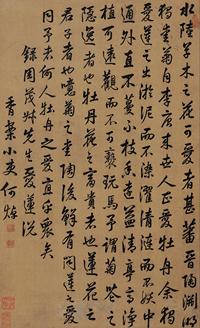 水陸草木之花可愛者甚蕃晉陶淵明
獨愛菊自李唐來世人正愛牡丹余獨
愛蓮之出淤泥而不染濯清漣而不妖中
通外直不蔓不枝香遠益清亭亭淨
植可遠觀而不可褻玩焉予謂菊花之
隱逸者也牡丹花之富貴者也蓮花之
君子者也噫菊之愛陶後鮮有聞蓮之愛
同予者何人牡丹之愛宜乎衆矣
錄周茂叔先生愛蓮說
香案小吏何焯